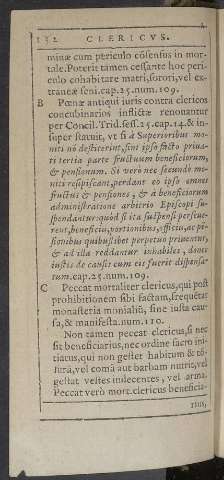 152 CLERICVS.
minæ cum periculo cõsensus in mor-
tale. Poterit tamen cessante hoc peri-
culo cohabitare matri, sorori, vel ex-
traneæ seni. cap. 25. num. 109.
B Pœnæ antiqui iuris contra clericos
concubinarios inflictæ renouantur
per Concil. Trid. sess. 25. cap. 14. & in-
super statuit, vt si à Superioribus mo-
niti nõ desisterint, sint ipso facto priua-
ti tertia parte fructuum beneficiorum,
& pensionum. Si verò nec secundo mo-
niti resipiscant, perdant eo ipso omnes
fructus & pensiones, & à beneficiorum
administratione arbitrio Episcopi su-
spendantur: quòd si ita suspensi perseue-
rent, beneficiis, portionibus, officiis, ac pẽ-
sionibus quibuslibet perpetuo priuentur,
& ad illa reddantur inhabiles, donec
iustis de causis cum eis fuerit dispensa-
tum. cap. 25. num. 109.
C Peccat mortaliter clericus, qui post
prohibitionem sibi factam, frequẽtat
monasteria monialiũ, sine iusta cau-
sa, & manifesta. num. 110.
Non tamen peccat clericus, si nec
sit beneficiarius, nec ordine sacro ini-
tiatus, qui non gestet habitum & tõ-
surã, vel comã aut barbam nutrit, vel
gestat vestes indecentes, vel arma.
Peccat verò mort. clericus beneficia-
rius,